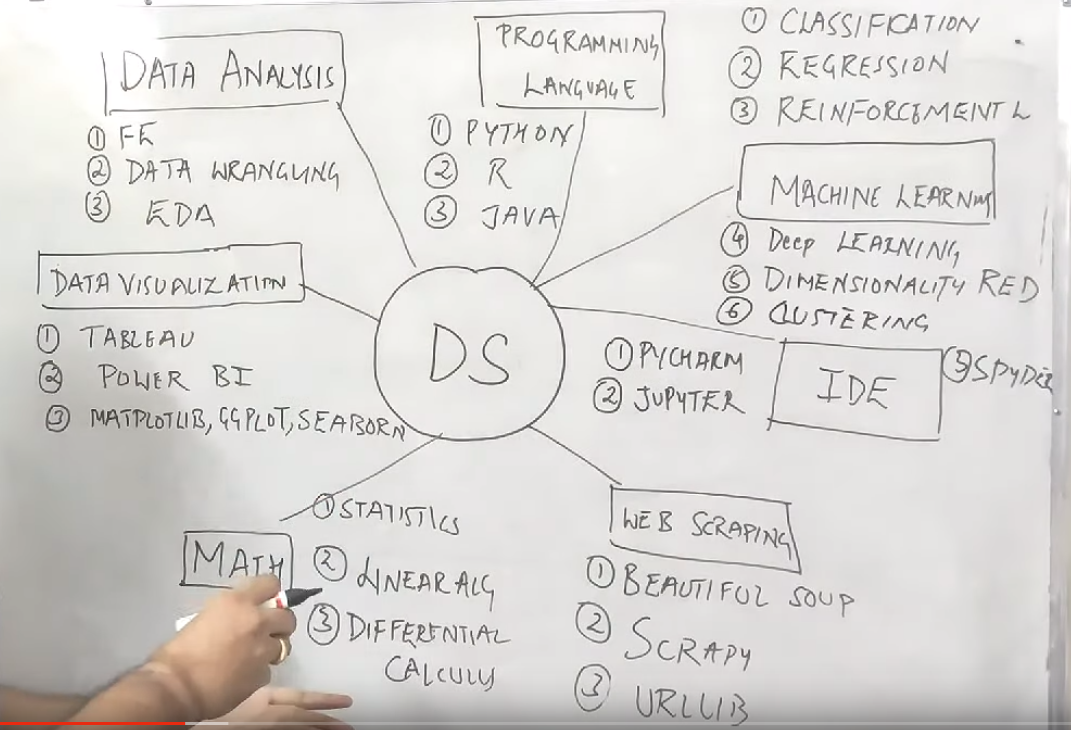 DATA ANALYSIS
① FE
② DATA WRANGLING
③ EDA
PROGRAMMING
LANGUAGE
① PYTHON
② R
③ JAVA
① CLASSIFICATION
② REGRESSION
③ REINFORCEMENT L
MACHINE LEARNING
④ Deep LEARNING
⑤ DIMENSIONALITY RED
⑥ CLUSTERING
DATA VISUALIZATION
① TABLEAU
② POWER BI
③ MATPLOTLIB, GGPLOT, SEABORN
DS
① PYCHARM
② JUPYTER
IDE
③ SPYDER
MATH
① STATISTICS
② LINEAR ALG
③ DIFFERENTIAL
CALCULUS
WEB SCRAPING
① BEAUTIFUL SOUP
② SCRAPY
③ URLLIB